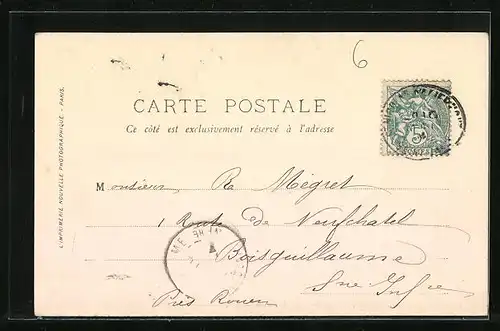 6
CARTE POSTALE
Ce côté est exclusivement réservé à l'adresse
L'IMPRIMERIE NOUVELLE PHOTOGRAPHIQUE - PARIS.
5
Monsieur R. Mégret
1 Route de Neufchatel
Boisguillaume
Sne Infre
Près Rouen